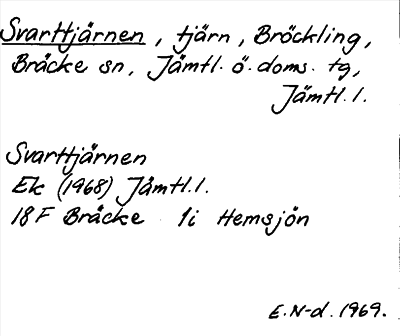 Svarttjärnen, tjärn, Bröckling,
Bräcke sn, Jämtl. ö. doms. tg,
Jämtl. l.
Svarttjärnen
Ek (1968) Jämtl. l.
18 F Bräcke 1i Hemsjön
E. N-d. 1969.